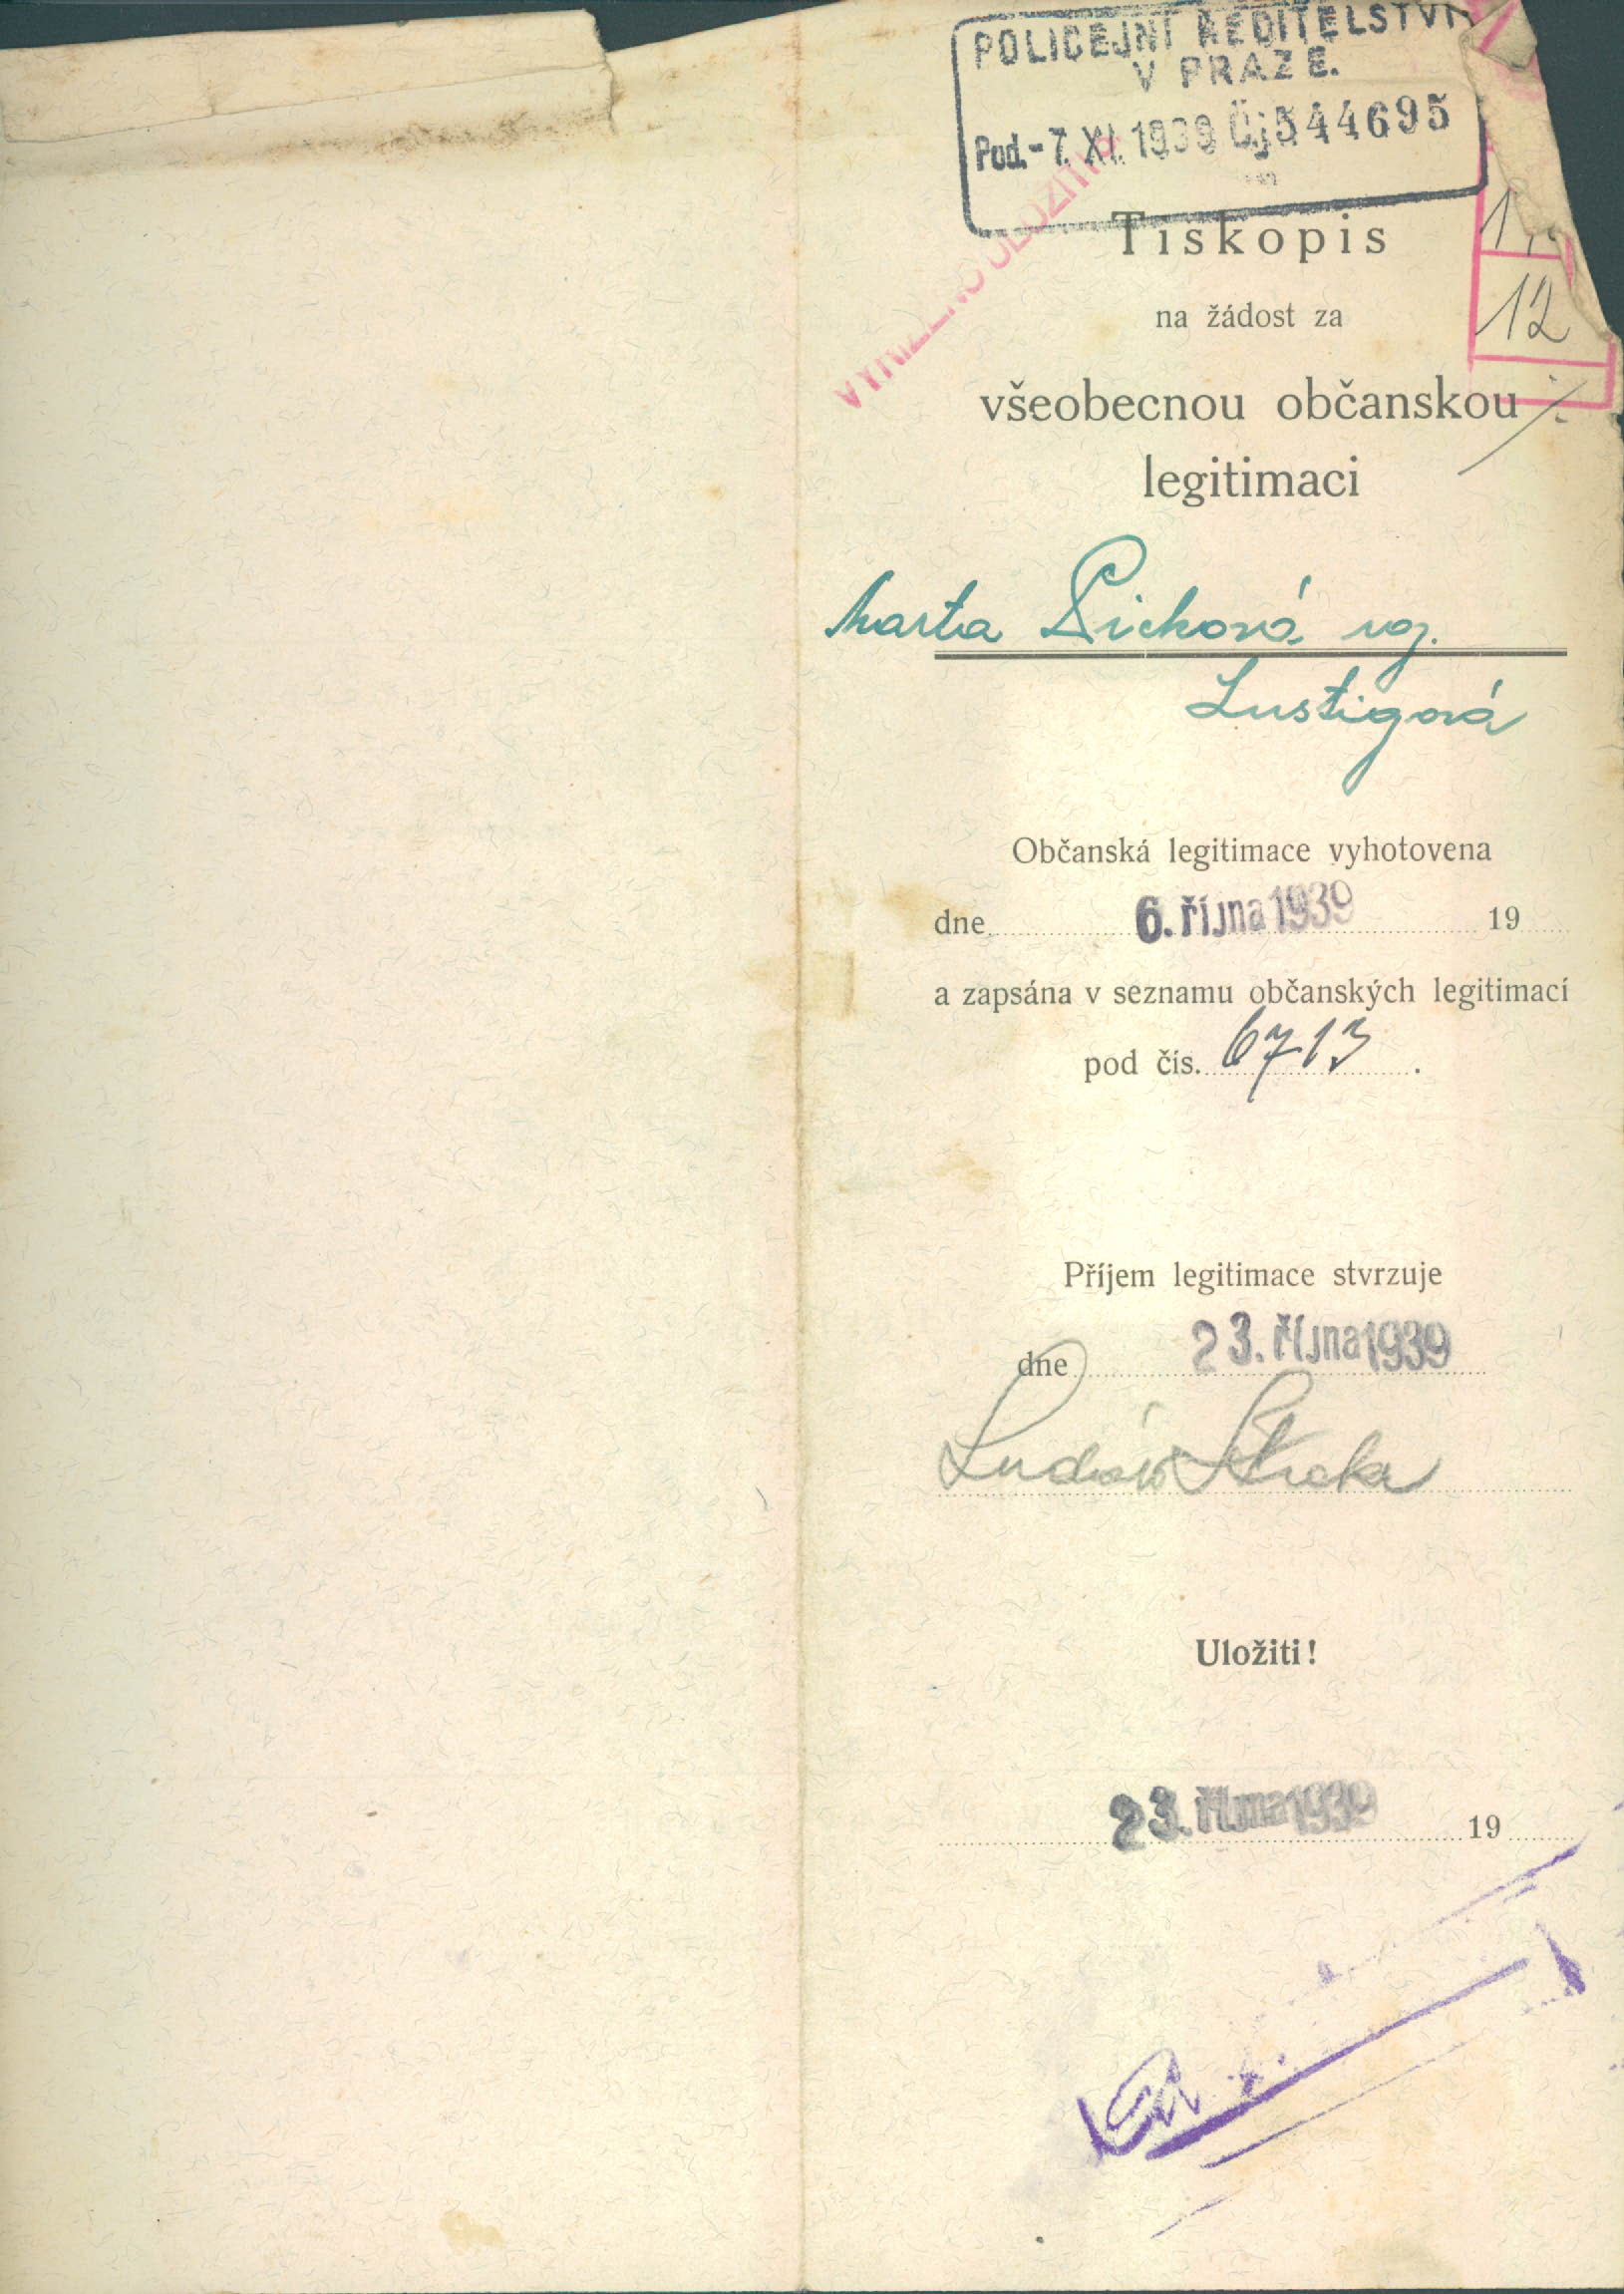 POLICEJNÍ ŘEDITELSTVÍ
V PRAZE.
Pod. - 7. XI. 1939 Čj 544695
Tiskopis
12
na žádost za
všeobecnou občanskou
legitimaci
Marta Picková roz.
Lustigová
Občanská legitimace vyhotovena
dne 6. října 1939 19
a zapsána v seznamu občanských legitimací
pod čís. 6713 .
Příjem legitimace stvrzuje
dne 23. října 1939
Uložiti!
23. října 1939 19